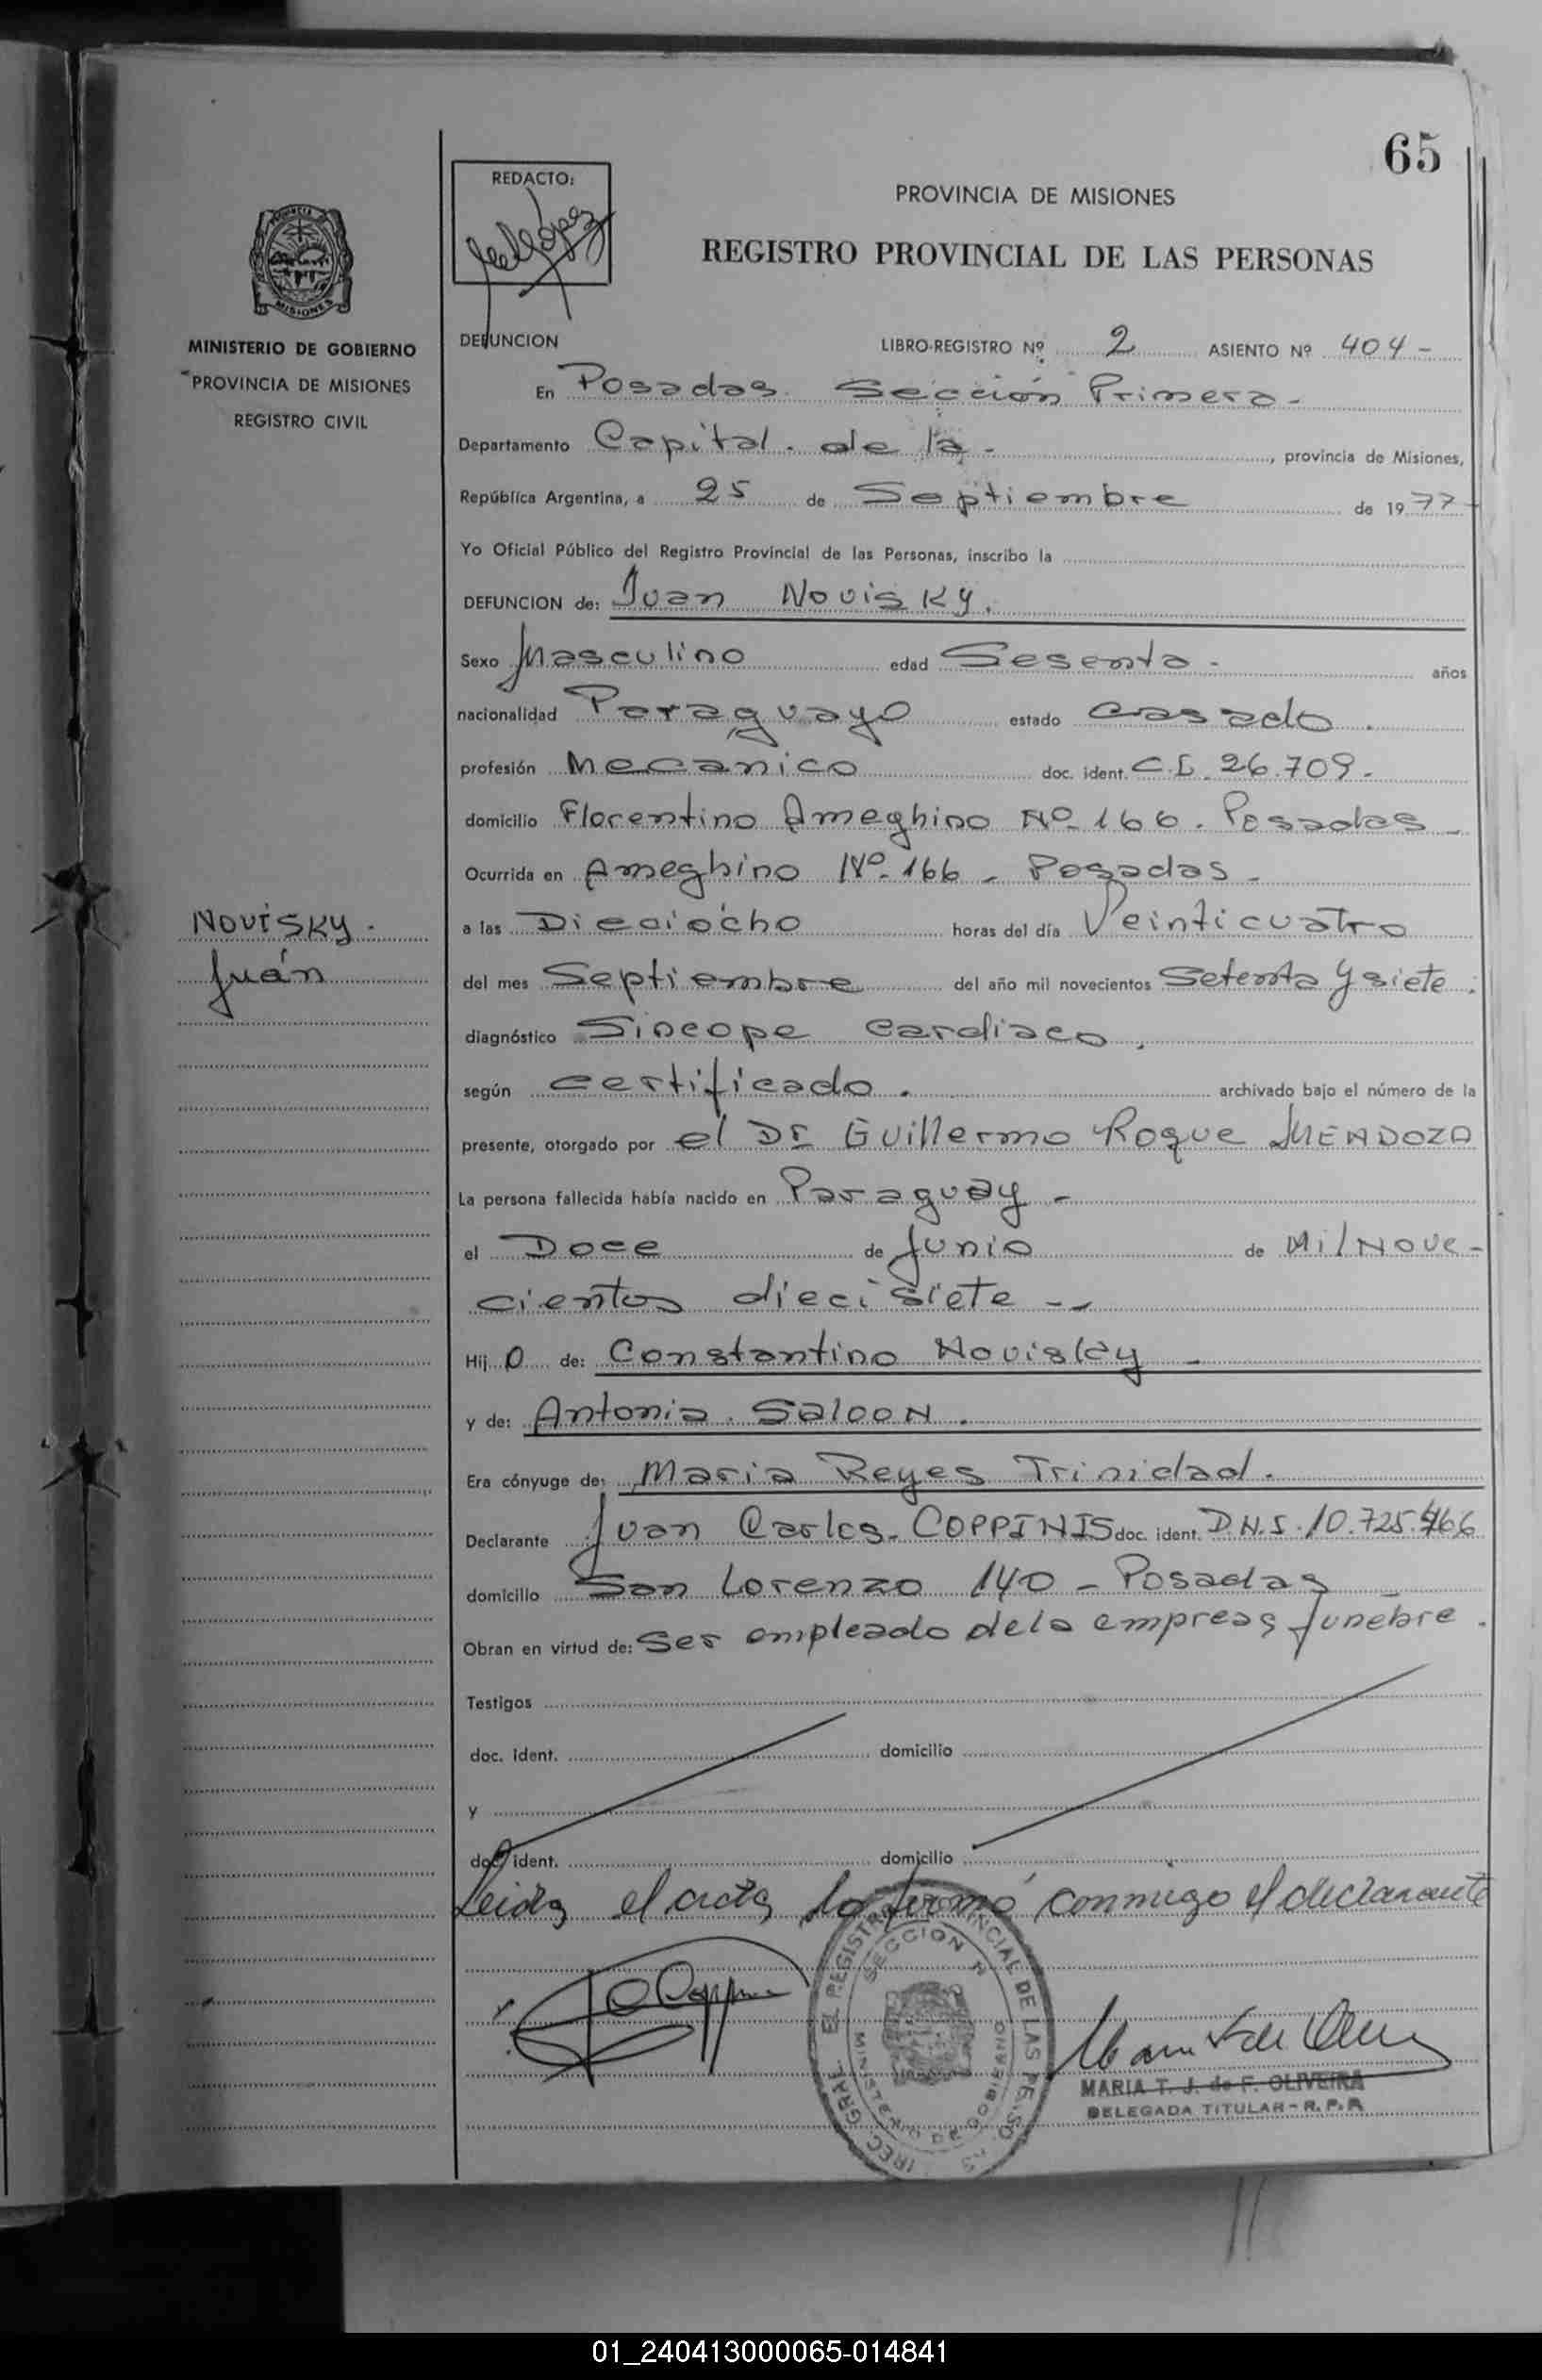 65
REDACTO:
PROVINCIA DE MISIONES
REGISTRO PROVINCIAL DE LAS PERSONAS
MISIONES
MINISTERIO DE GOBIERNO
PROVINCIA DE MISIONES
REGISTRO CIVIL
DEFUNCION
LIBRO-REGISTRO Nº 2 ASIENTO Nº 404 -
En Posadas Sección Primera -
Departamento Capital. de la - , provincia de Misiones,
República Argentina, a 25 de Septiembre de 1977
Yo Oficial Público del Registro Provincial de las Personas, inscribo la
DEFUNCION de: Juan Novisky.
Sexo Masculino edad Sesenta - años
nacionalidad Paraguayo estado casado.
profesión Mecanico doc. ident. C.I. 26.709.
domicilio Florentino Ameghino Nº 166. Posadas -
Ocurrida en Ameghino Nº 166 - Posadas -
Novisky.
Juán
a las Dieciocho horas del día Veinticuatro
del mes Septiembre del año mil novecientos Setenta y siete.
diagnóstico Sincope Cardiaco.
según certificado. archivado bajo el número de la
presente, otorgado por el Dr Guillermo Roque MENDOZA
La persona fallecida había nacido en Paraguay -
el Doce de Junio de Mil Nove-
cientos diecisiete --
Hijo de: Constantino Novisky -
y de: Antonia Saloon.
Era cónyuge de: Maria Reyes Trinidad.
Declarante Juan Carlos - COPPINIS doc. ident. D.N.I. 10.725.466
domicilio San Lorenzo 140 - Posadas
Obran en virtud de: Ser empleado de la empresa funebre.
Testigos
doc. ident. domicilio
y
doc. ident. domicilio
Leida el acta, la firmó conmigo el declarante
SECCION
MINISTERIO DE GOBIERNO
MARIA T. J. de F. OLIVEIRA
DELEGADA TITULAR - R.P.P.
01_240413000065-014841